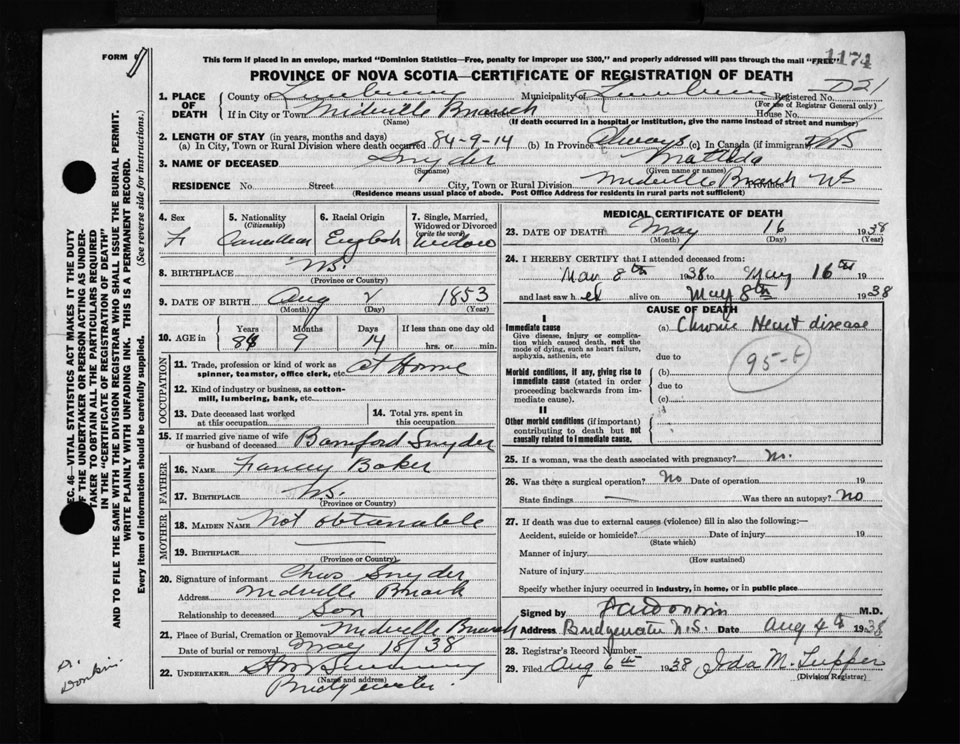 FORM
1174
This form if placed in an envelope, marked "Dominion Statistics—Free, penalty for improper use $300," and properly addressed will pass through the mail "FREE"
PROVINCE OF NOVA SCOTIA—CERTIFICATE OF REGISTRATION OF DEATH
1. PLACE OF DEATH County of Lunenburg Municipality of Lunenburg Registered No. D21
(For use of Registrar General only)
If in City or Town Midville Branch House No.
(Name) (If death occurred in a hospital or institution, give the name instead of street and number)
2. LENGTH OF STAY (in years, months and days)
(a) In City, Town or Rural Division where death occurred 84-9-14 (b) In Province Always (c) In Canada (if immigrant)
3. NAME OF DECEASED Snyder Matilda
(Surname) (Given name or names)
RESIDENCE No. Street City, Town or Rural Division Midville Branch Province NS
(Residence means usual place of abode. Post Office Address for residents in rural parts not sufficient)
4. Sex F
5. Nationality (Citizenship) Canadian
6. Racial Origin English
7. Single, Married, Widowed or Divorced (write the word) Widow
8. BIRTHPLACE N.S.
(Province or Country)
9. DATE OF BIRTH Aug 2 1853
(Month) (Day) (Year)
10. AGE in Years Months Days If less than one day old
84 9 14 hrs. or min.
OCCUPATION
11. Trade, profession or kind of work as spinner, teamster, office clerk, etc. At Home
12. Kind of industry or business, as cotton-mill, lumbering, bank, etc.
13. Date deceased last worked at this occupation
14. Total yrs. spent in this occupation
15. If married give name of wife or husband of deceased Bamford Snyder
FATHER
16. NAME Baker
17. BIRTHPLACE N.S.
(Province or Country)
MOTHER
18. MAIDEN NAME Not obtanable
19. BIRTHPLACE
(Province or Country)
20. Signature of informant Snyder
Address Midville Branch
Relationship to deceased Son
21. Place of Burial, Cremation or Removal Midville Branch
Date of burial or removal May 18/38
22. UNDERTAKER
(Name and address)
Bridgewater.
MEDICAL CERTIFICATE OF DEATH
23. DATE OF DEATH May 16 1938
(Month) (Day) (Year)
24. I HEREBY CERTIFY that I attended deceased from:
May 8th 1938 to May 16th 19
and last saw her alive on May 8th 1938
CAUSE OF DEATH
I
Immediate cause (a) Chronic Heart disease
Give disease, injury or complication which caused death, not the mode of dying, such as heart failure, asphyxia, asthenia, etc
due to
Morbid conditions, if any, giving rise to immediate cause (stated in order proceeding backwards from immediate cause).
(b)
due to
(c)
95-
II
Other morbid conditions (if important) contributing to death but not causally related to immediate cause.
25. If a woman, was the death associated with pregnancy? No.
26. Was there a surgical operation? No Date of operation 19
State findings — Was there an autopsy? No
27. If death was due to external causes (violence) fill in also the following:—
Accident, suicide or homicide? Date of injury 19
(State which)
Manner of injury
(How sustained)
Nature of injury
Specify whether injury occurred in industry, in home, or in public place
Signed by M.D.
Address Bridgewater N.S. Date Aug 4th 1938
28. Registrar's Record Number
29. Filed Aug 6th 1938 Ida M. Tupper
(Division Registrar)
SEC. 46—VITAL STATISTICS ACT MAKES IT THE DUTY
OF THE UNDERTAKER OR PERSON ACTING AS UNDERTAKER TO OBTAIN ALL THE PARTICULARS REQUIRED
IN THE "CERTIFICATE OF REGISTRATION OF DEATH"
AND TO FILE THE SAME WITH THE DIVISION REGISTRAR WHO SHALL ISSUE THE BURIAL PERMIT.
WRITE PLAINLY WITH UNFADING INK. THIS IS A PERMANENT RECORD.
Every item of information should be carefully supplied. (See reverse side for instructions.)